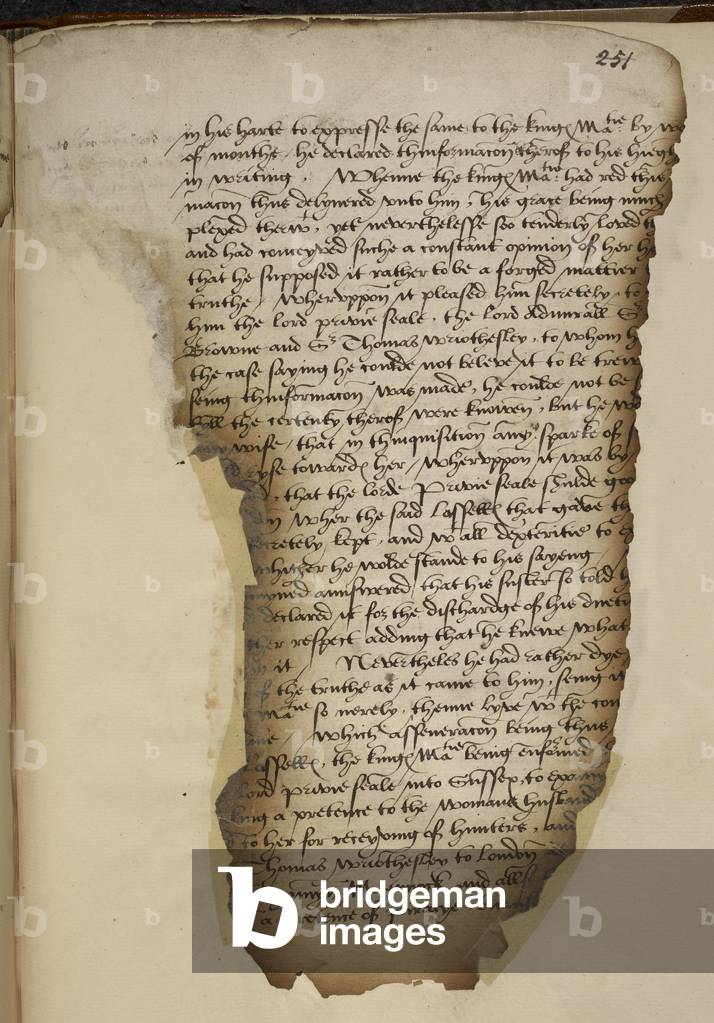 251
in his harte to expresse the same to the kings Matie by
of mouthe he declared thinformacon therof to his
in writing. Whenne the kings Matie had red this
macon thus delyuered vnto him, his grace being much
plexed therwt, yet neverthelesse soo tenderly loved
and had conceyved suche a constant opinion of her
that he supposed it rather to be a forged mattier
truthe. Wheruppon it pleased him secretely to
him the lord privie seale, the lord Admirall Sr
Browne and Sr Thomas wriothesley, to whom
the case saying he coulde not beleve it to be trewe
seing thinformacon was made, he coulde not be
till the certenty therof were knowen, but he
wise, that in thinquisition any sparke of
ryse towards her, wheruppon it was by
, that the lorde Privie seale shulde goo
wher the said Lassells that gave
secretely kept, and wt all dexteritie to
whither he wolde stande to his sayeng
answered, that his suster so told
declared it for the dischardge of his
respect adding that he knewe what
it, Nevertheles he had rather dye
of the truthe as it came to him, seing it
Matie so nerely, thenne lyve wt the con
Whiche asseveracon being thus
Lassells, the kings Matie being enformed
Lord privie seale into Sussex, to
a pretence to the womans husband
to her for receyving of hunters, and
Thomas wriothesley to London
bridgeman
images